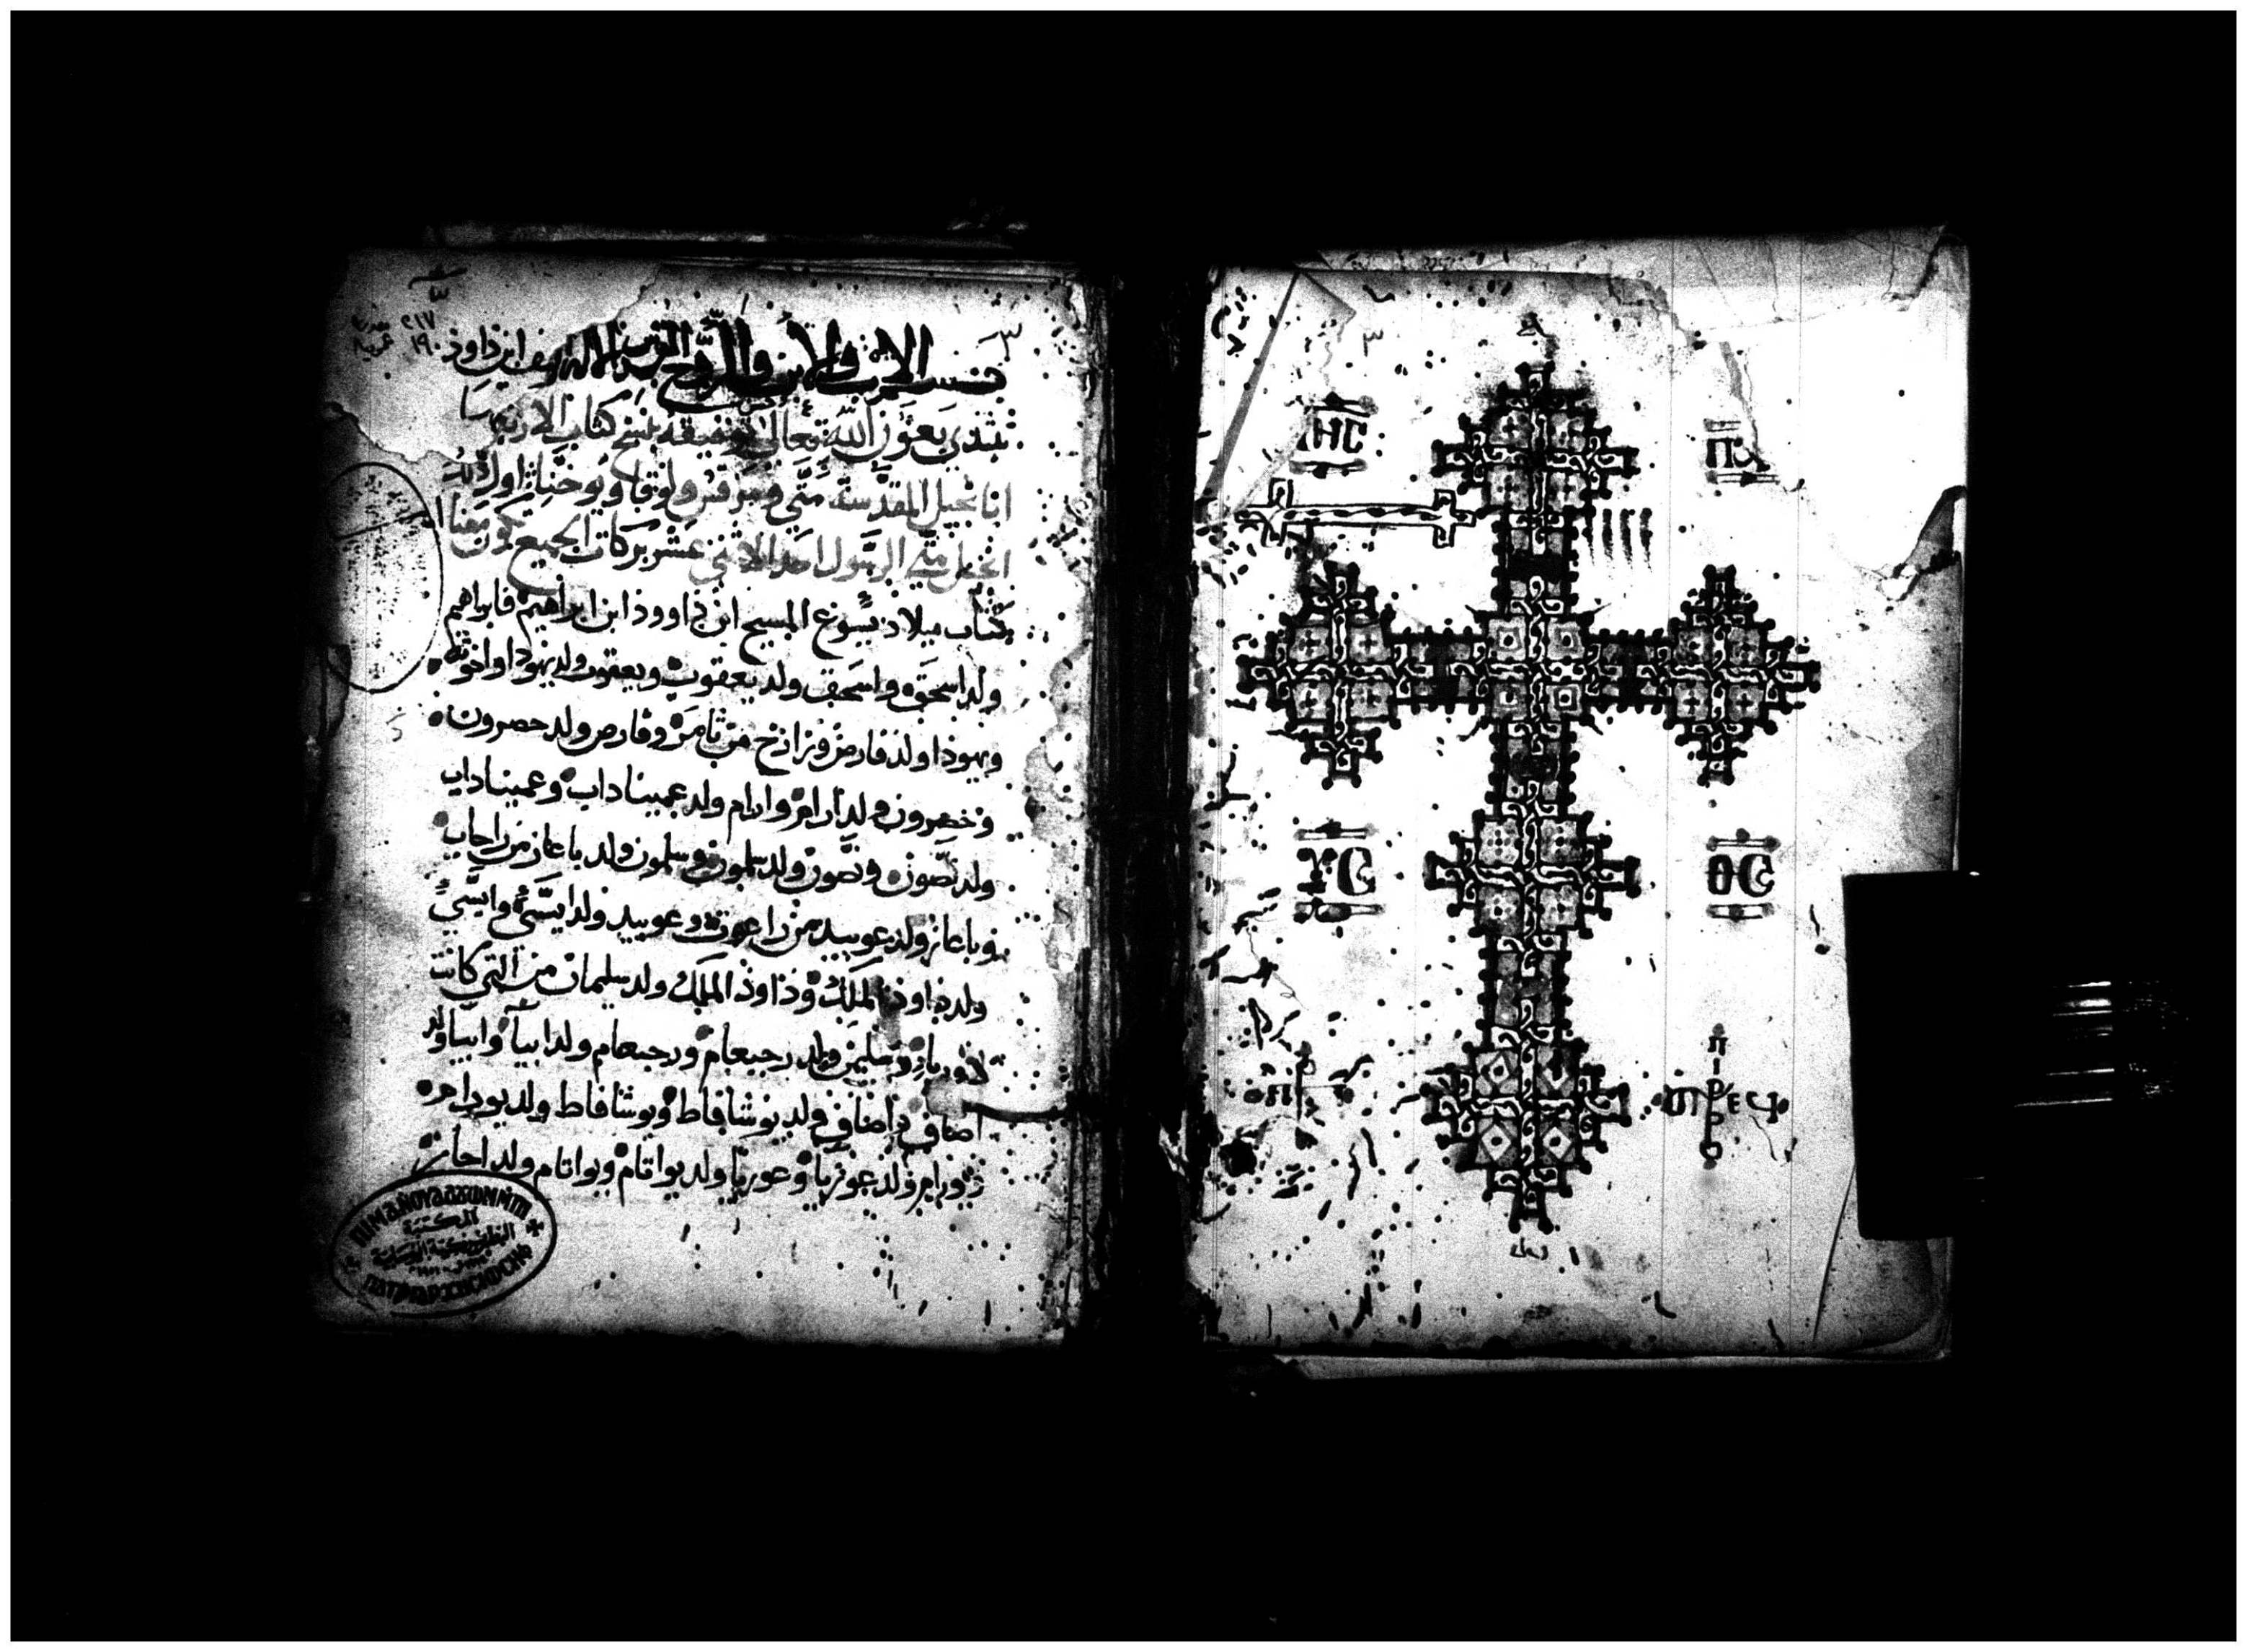 بسم الاب والابن والروح القدس
نبتدي بعون الله تعالى وتوفيقه بنسخ كتاب الاربعة
اناجيل المقدسة متى ومرقس ولوقا ويوحنا اول ذلك
انجيل متى الرسول احد الاثني عشر بركات الجميع تكون معنا
كتاب ميلاد يسوع المسيح ابن داوود ابن ابراهيم فابراهيم
ولد اسحق واسحق ولد يعقوب ويعقوب ولد يهودا واخوته
ويهودا ولد فارص وزارح من تامر وفارص ولد حصرون
وحصرون ولد ارام وارام ولد عميناداب وعميناداب
ولد نصون ونصون ولد سلمون وسلمون ولد باعاز من راحاب
وباعاز ولد عوبيد من راعوث وعوبيد ولد ايسى وايسى
ولد داود الملك وداود الملك ولد سليمان من التي كانت
لاوريا وسليمن ولد رحبعام ورحبعام ولد ابيا وابيا ولد
اصاف واصاف ولد يوشافاط ويوشافاط ولد يورام
ويورام ولد عوزيا وعوزيا ولد يواتام ويواتام ولد احاز
المكتبة
٢١٧
٣
٣
ⲓⲏⲥ
ⲡⲭ
ⲩⲥ
ⲑⲥ